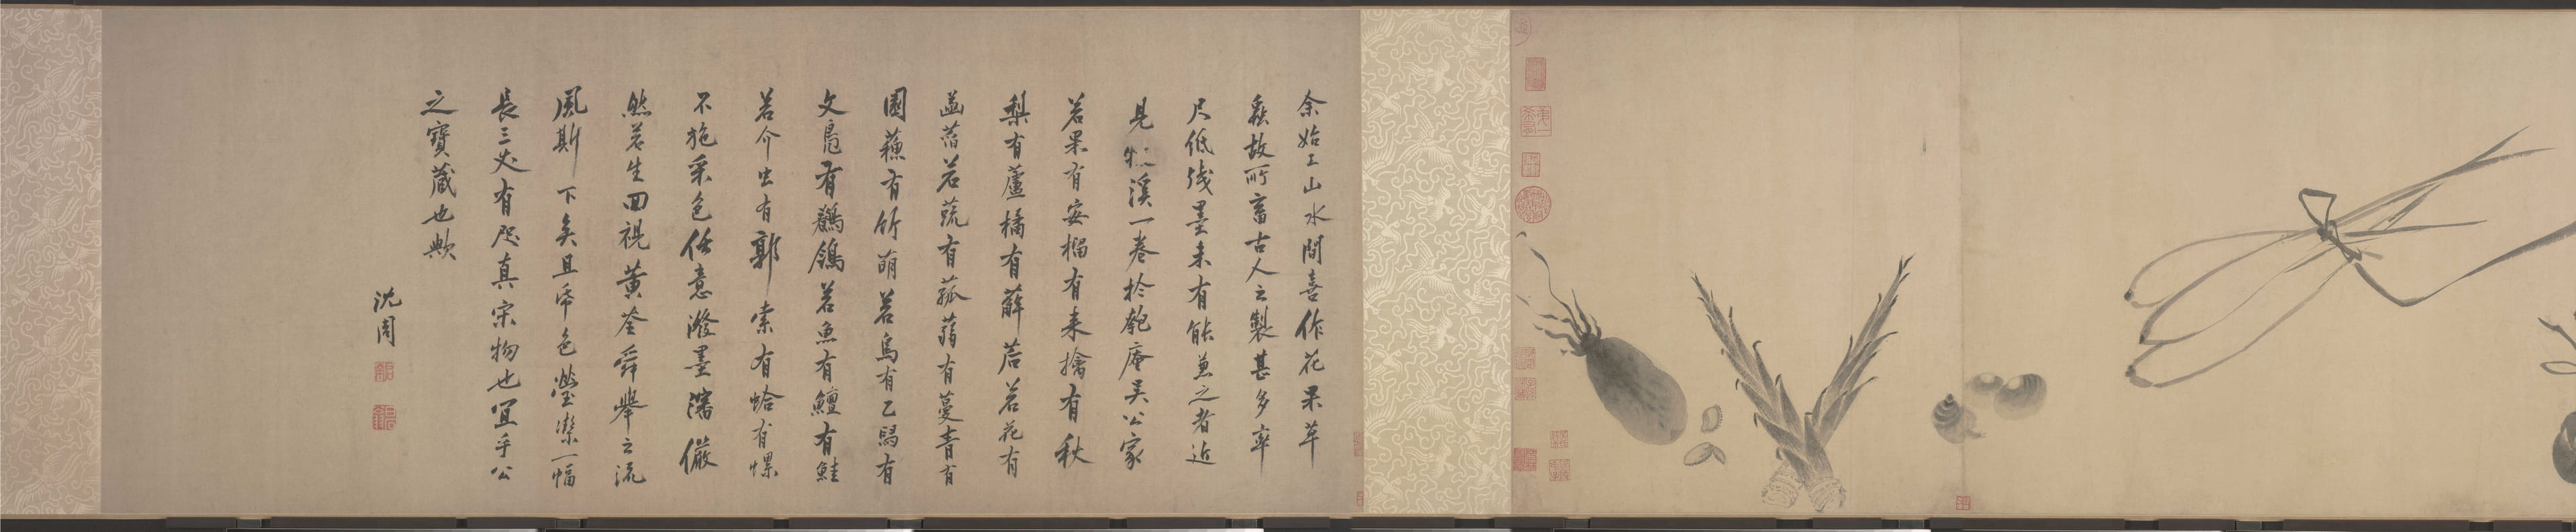 余始工山水間喜作花果草
蟲故所畜古人之製甚多率
尺低殘墨未有能兼之者近
見牧溪一卷於匏庵吳公家
若果有安榴有来擒有秋
梨有蘆橘有薢茩若花有
菡萏若蔬有菰蒻有蔓青有
園蘓有竹萌若鳥有乙舄有
文鳬有鵓鴿若魚有鱣有鮭
若介虫有郭索有蛤有螺
不施采色任意潑墨瀋儼
然若生回視黃荃舜舉之流
風斯下矣且帋色瑩潔一幅
長三丈有咫真宋物也宜乎公
之寶藏也歟
沈周